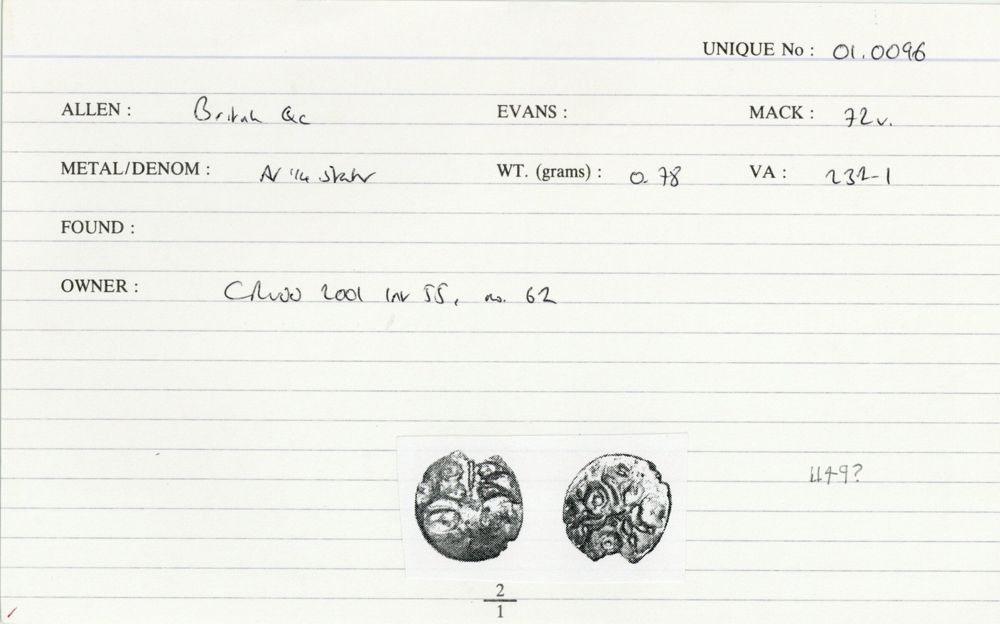 UNIQUE No : 01.0096
ALLEN : British Qc EVANS : MACK : 72v.
METAL/DENOM : 1/4 stater WT. (grams) : 0.78 VA : 232-1
FOUND :
OWNER : 2001 no. 62
449?
2
1